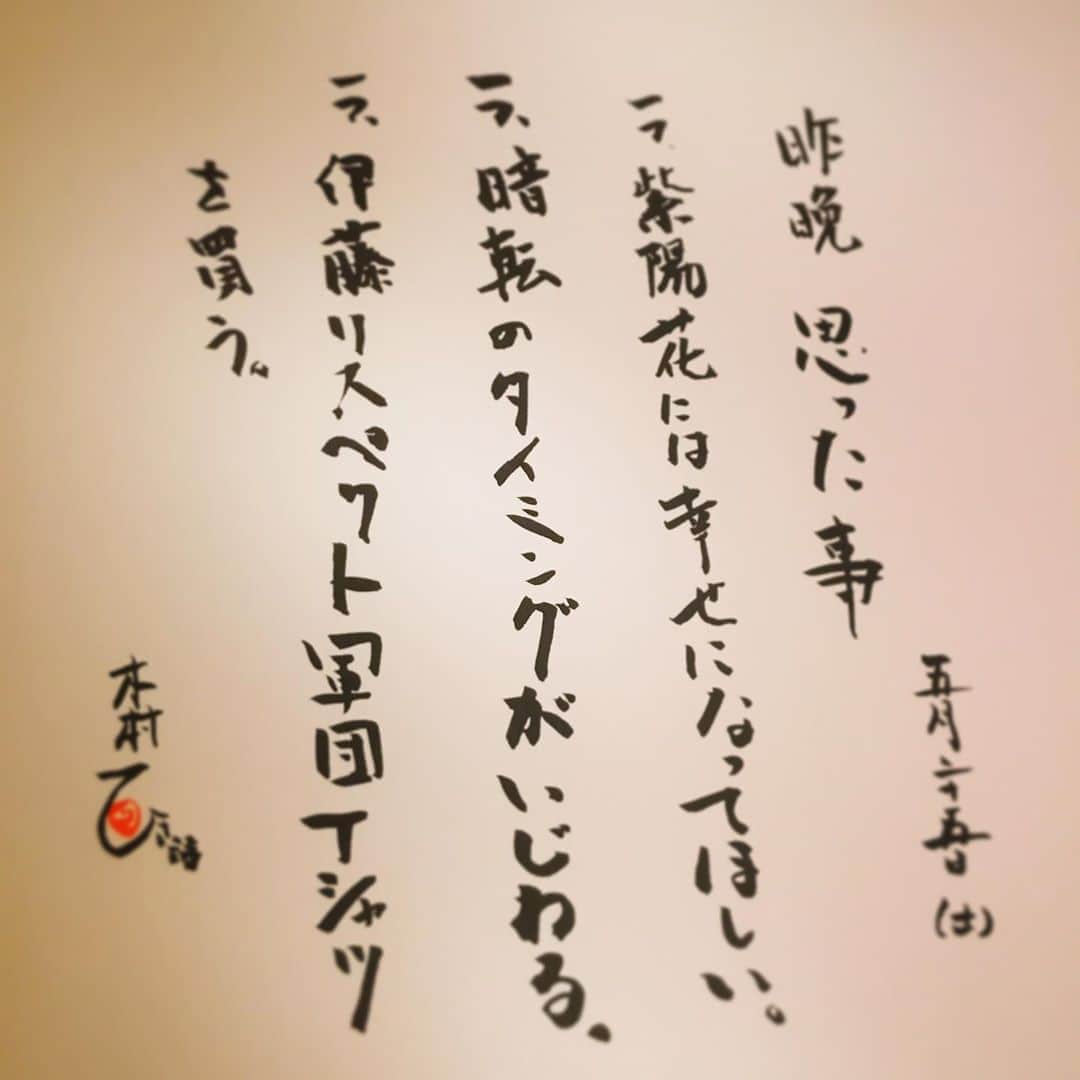 五月二十五日(土)
昨晩 思った事
一つ、紫陽花には幸せになってほしい。
一つ、暗転のタイミングがいじわる、
一つ、伊藤リスペクト軍団Tシャツ
を買う。
木村